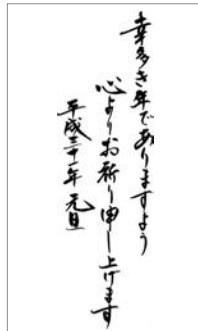 幸多き年でありますよう
心よりお祈り申し上げます
平成三十一年 元旦